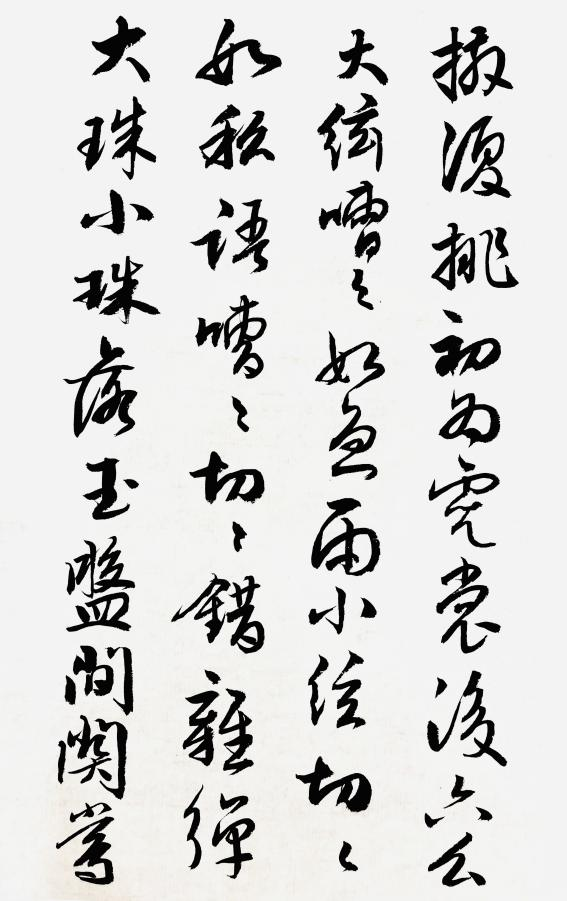 撥復挑初為霓裳後六幺
大絃嘈〻如急雨小絃切〻
如私語嘈〻切〻錯雜彈
大珠小珠落玉盤間關鶯